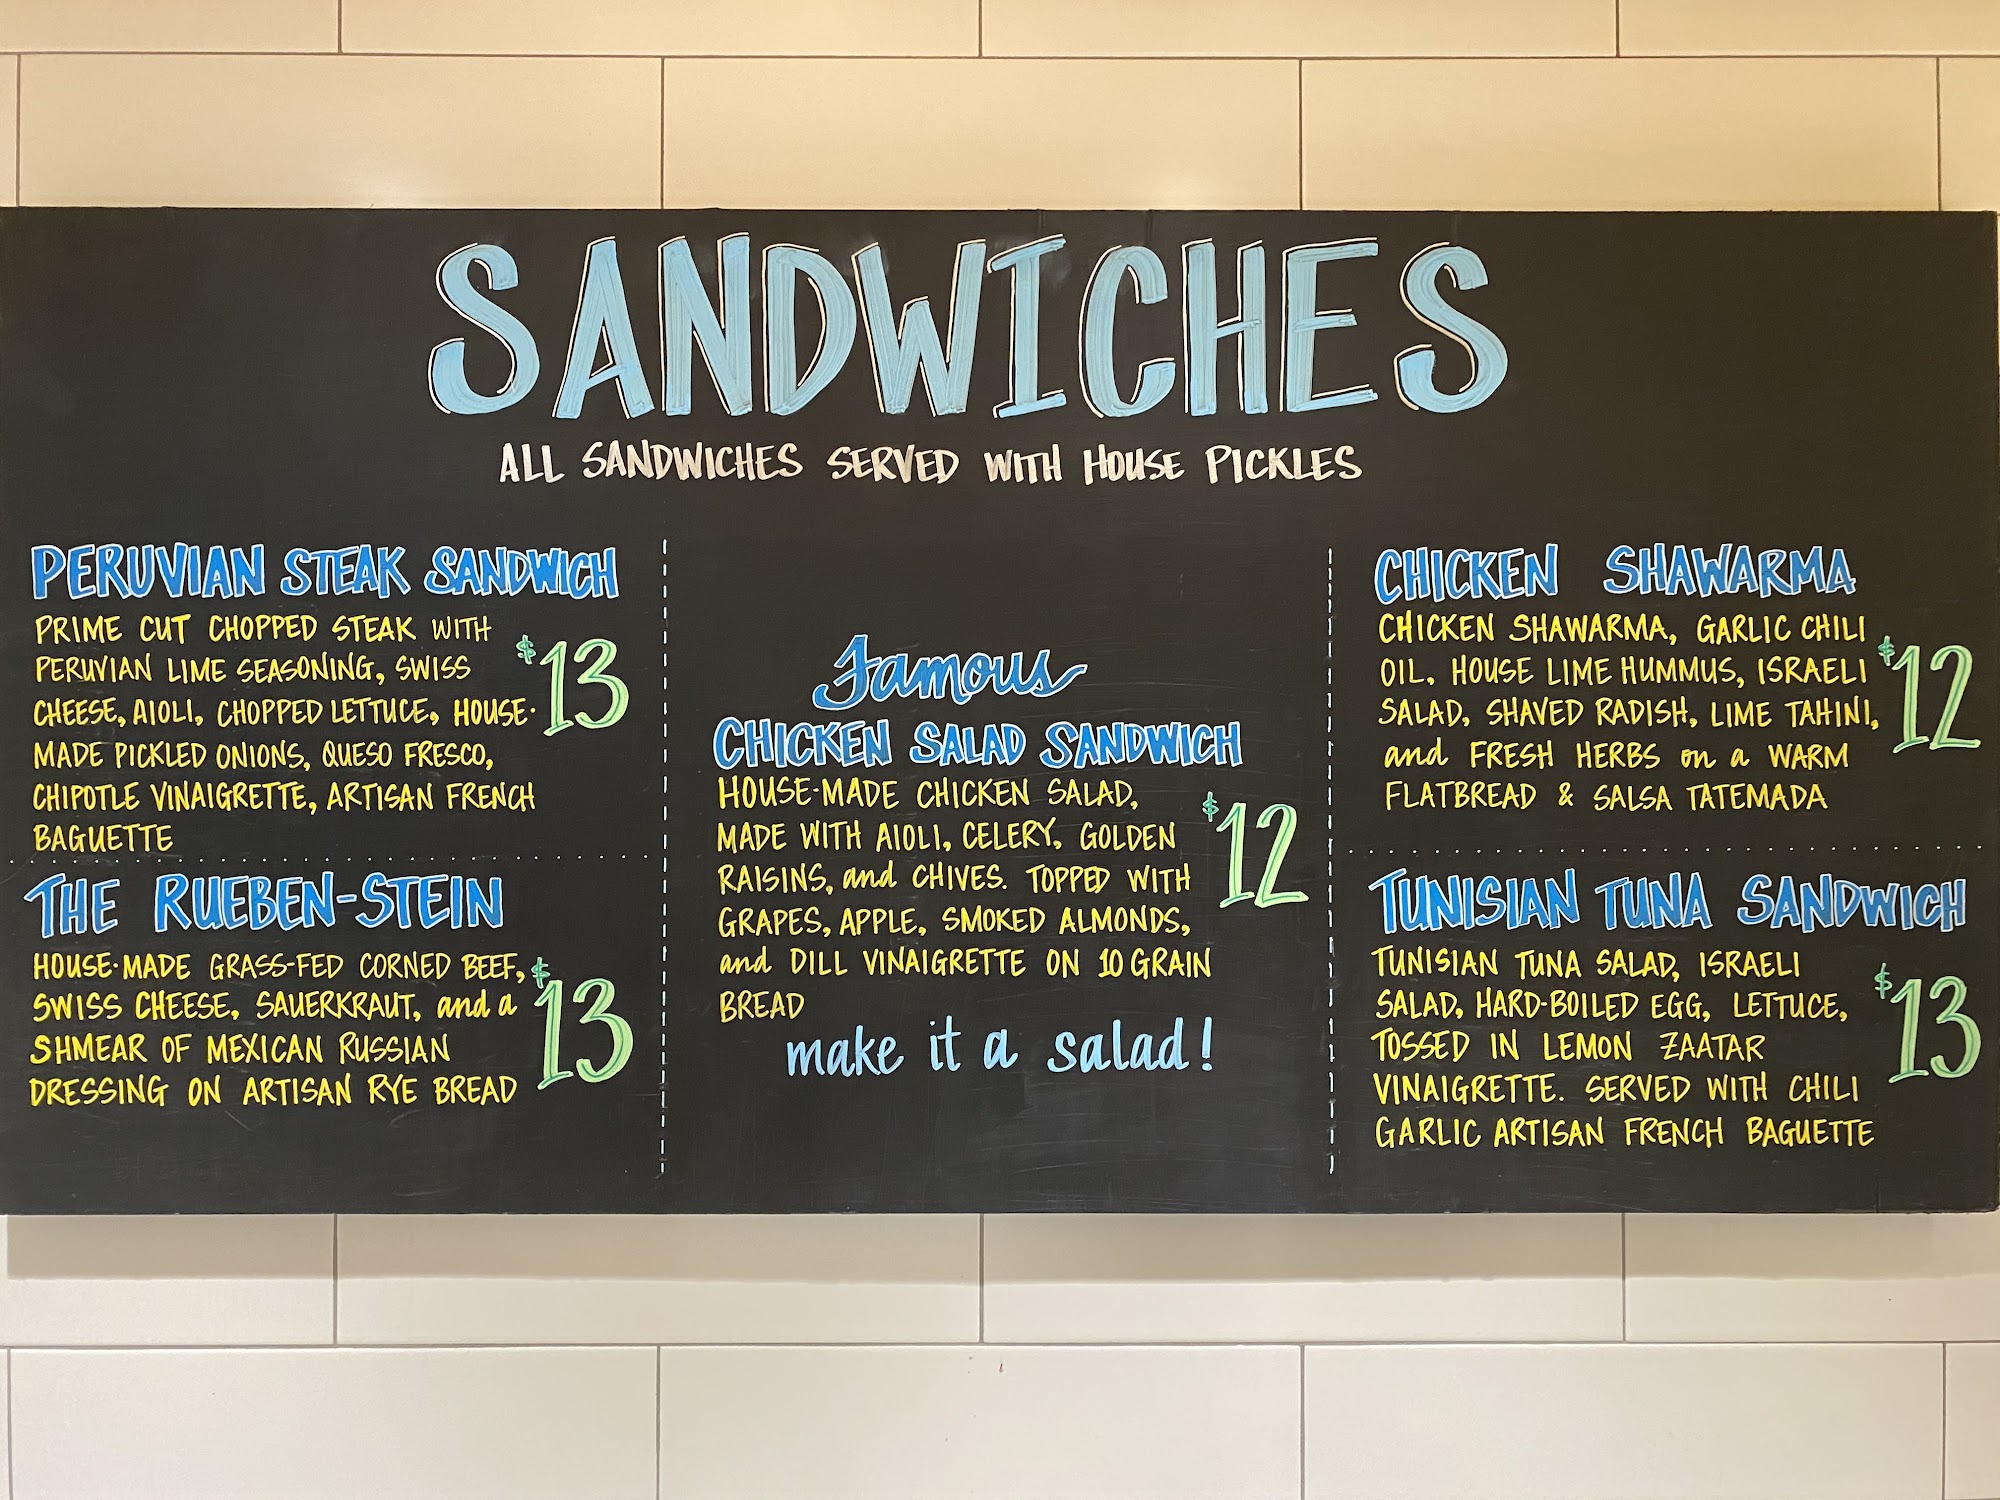 SANDWICHES
ALL SANDWICHES SERVED WITH HOUSE PICKLES
PERUVIAN STEAK SANDWICH
PRIME CUT CHOPPED STEAK WITH
PERUVIAN LIME SEASONING, SWISS
CHEESE, AIOLI, CHOPPED LETTUCE, HOUSE-
MADE PICKLED ONIONS, QUESO FRESCO,
CHIPOTLE VINAIGRETTE, ARTISAN FRENCH
BAGUETTE
$13
THE RUEBEN-STEIN
HOUSE-MADE GRASS-FED CORNED BEEF,
SWISS CHEESE, SAUERKRAUT, and a
SHMEAR OF MEXICAN RUSSIAN
DRESSING ON ARTISAN RYE BREAD
$13
Famous
CHICKEN SALAD SANDWICH
HOUSE-MADE CHICKEN SALAD,
MADE WITH AIOLI, CELERY, GOLDEN
RAISINS, and CHIVES. TOPPED WITH
GRAPES, APPLE, SMOKED ALMONDS,
and DILL VINAIGRETTE ON 10 GRAIN
BREAD
$12
make it a salad!
CHICKEN SHAWARMA
CHICKEN SHAWARMA, GARLIC CHILI
OIL, HOUSE LIME HUMMUS, ISRAELI
SALAD, SHAVED RADISH, LIME TAHINI,
and FRESH HERBS on a WARM
FLATBREAD & SALSA TATEMADA
$12
TUNISIAN TUNA SANDWICH
TUNISIAN TUNA SALAD, ISRAELI
SALAD, HARD-BOILED EGG, LETTUCE,
TOSSED IN LEMON ZAATAR
VINAIGRETTE. SERVED WITH CHILI
GARLIC ARTISAN FRENCH BAGUETTE
$13